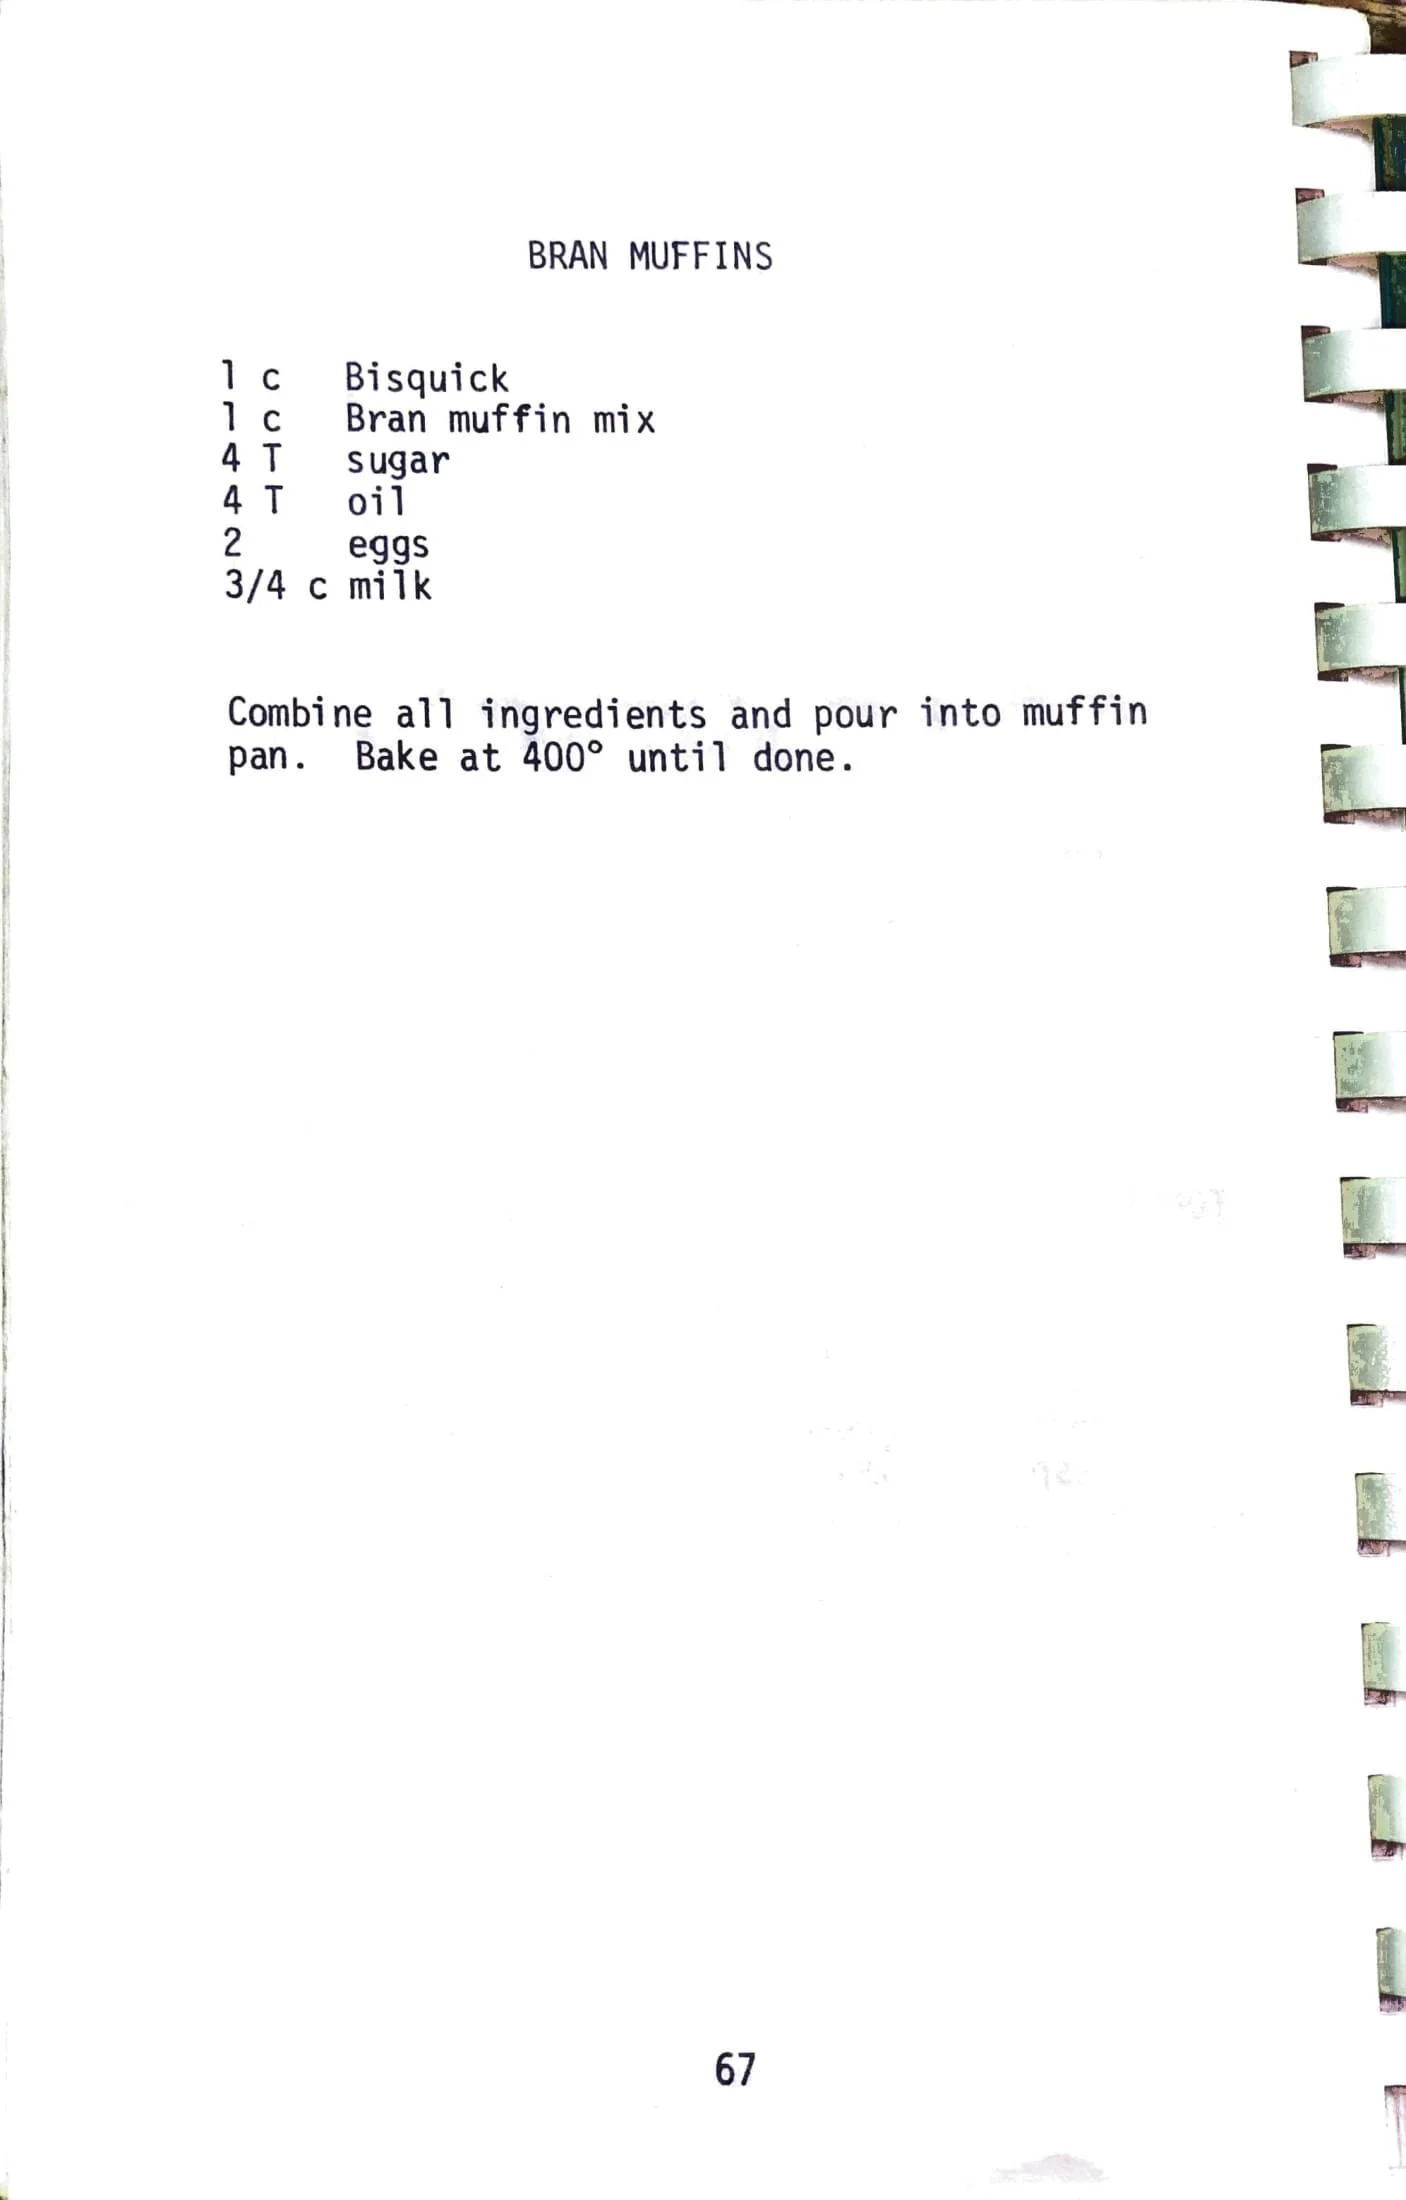 BRAN MUFFINS
1 c Bisquick
1 c Bran muffin mix
4 T sugar
4 T oil
2 eggs
3/4 c milk
Combine all ingredients and pour into muffin
pan. Bake at 400° until done.
67